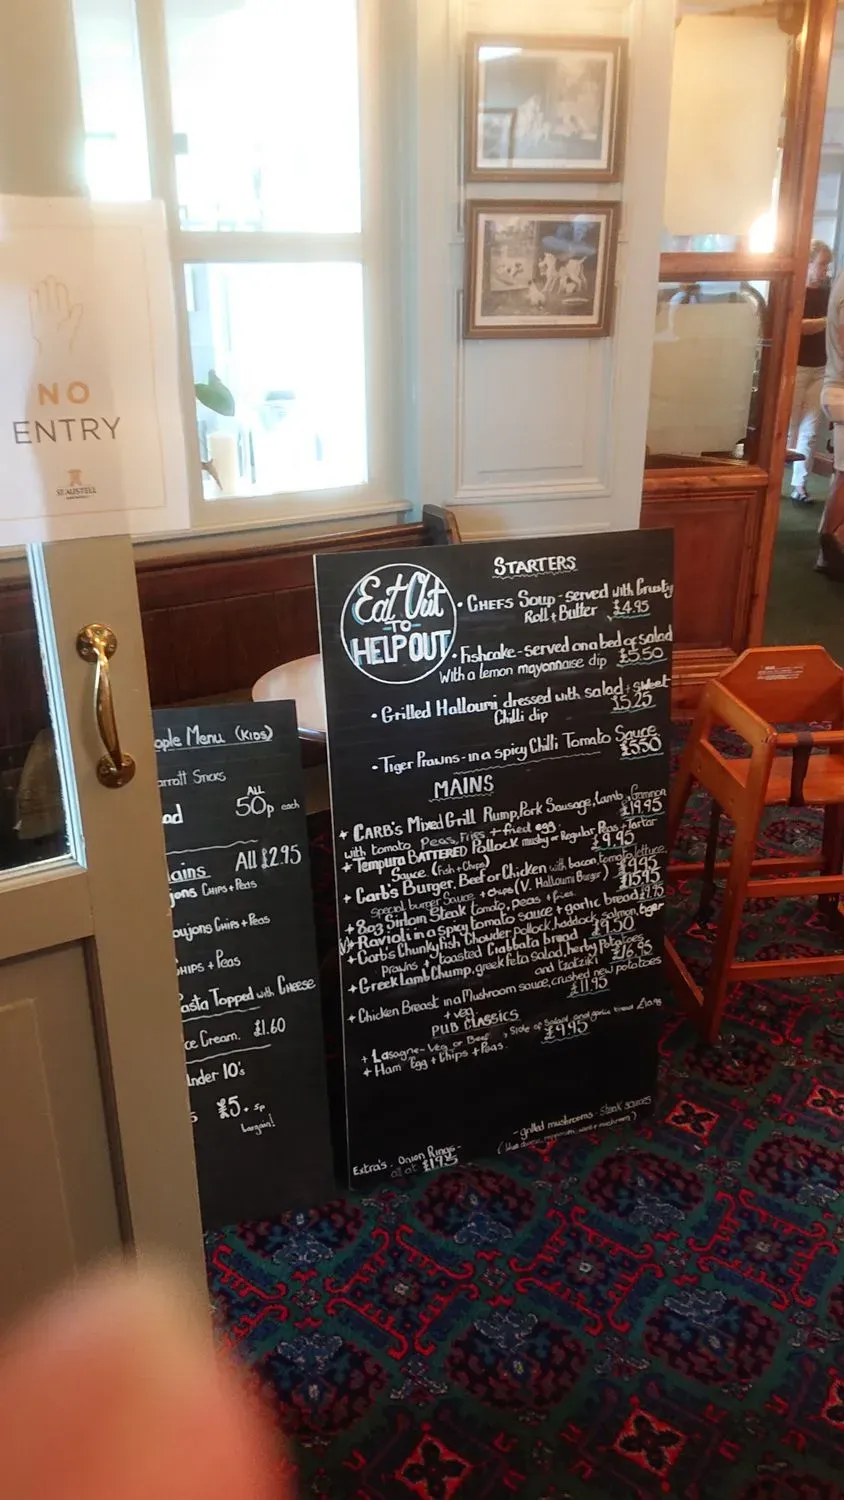 NO
ENTRY
ST AUSTELL
Eat Out
TO
HELP OUT
STARTERS
• CHEFS SOUP - served with Crusty
Roll + Butter £4.95
• Fishcake - served on a bed of salad
With a lemon mayonnaise dip £5.50
• Grilled Hallouni dressed with salad + sweet
Chilli dip £5.25
• Tiger Prawns - in a spicy Chilli Tomato Sauce
£5.50
MAINS
+ CARB'S Mixed Grill Rump, Pork Sausage, Lamb, Gammon
with tomato Peas, Fries + fried egg. £19.95
+ Tempura BATTERED Pollock mushy or Regular Peas + Tartar
Sauce (Fish + Chips) £9.95
+ Carb's Burger, Beef or Chicken with bacon, tomato, lettuce
special burger sauce + chips (V. Halloumi Burger) £9.95
+ 8oz Sirloin Steak tomato, peas + fries. £15.95
+ Ravioli in a spicy tomato sauce + garlic bread £9.95
+ Carb's Chunky fish Chowder, pollock, haddock, salmon, tiger
Prawns + toasted Ciabbata bread £9.50
+ Greek Lamb Chump, greek feta salad, herby Potatoes
and tzatziki £16.95
+ Chicken Breast in a Mushroom sauce, crushed new potatoes
+ veg. £11.95
PUB CLASSICS
+ Lasagne - Veg or Beef, + Side of Salad and garlic bread
+ Ham Egg + Chips + Peas. £9.95
Extra's. Onion Rings - - grilled mushrooms - steak sauces
all at £1.95
ople Menu (KIDS)
arrott Sticks
ad ALL 50p each
ains All £2.95
jons Chips + Peas
oujons Chips + Peas
hips + Peas
asta Topped with Cheese
ce Cream. £1.60
nder 10's
s £5.
bargain!